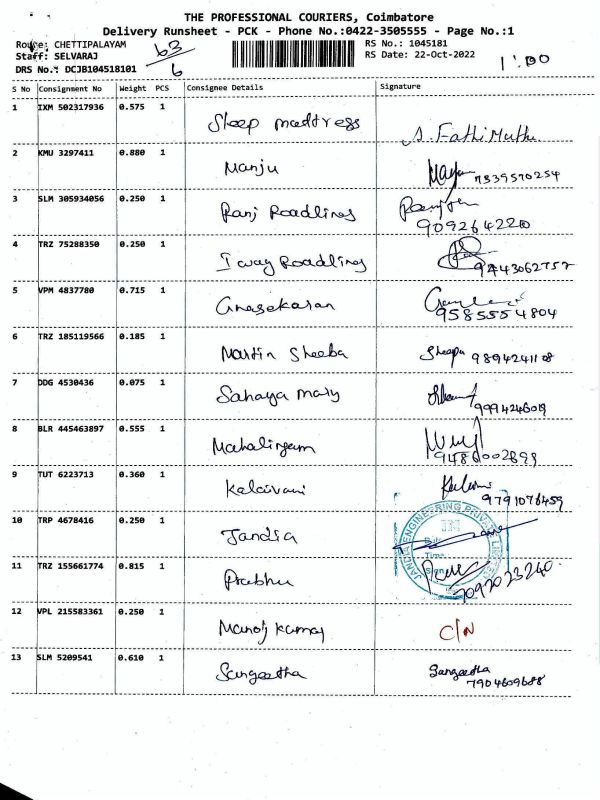 THE PROFESSIONAL COURIERS, Coimbatore
Delivery Runsheet - PCK - Phone No.:0422-3505555 - Page No.:1
Route: CHETTIPALAYAM
RS No.: 1045181
Staff: SELVARAJ
RS Date: 22-Oct-2022
DRS No.: DCJB104518101
63
6
1:00
S No Consignment No Weight PCS Consignee Details Signature
1 IXM 502317936 0.575 1 Sleep mattress S. FathiMuthu
2 KMU 3297411 0.880 1 Manju 7339570254
3 SLM 305934056 0.250 1 Ranj Roadlines
9092642210
4 TRZ 75288350 0.250 1 I way Roadlines 9443062757
5 VPM 4837780 0.715 1 Gnasekaran
9585554804
6 TRZ 185119566 0.185 1 Martin Sheeba Sheepa 9894241108
7 DDG 4530436 0.075 1 Sahaya mary
8 BLR 445463897 0.555 1 Mahalingam
9486002899
9 TUT 6223713 0.360 1 Kalaivani 9791076459
10 TRP 4678416 0.250 1 Jandia
JANDIA ENGINEERING PRIVATE LIMITED
11 TRZ 155661774 0.815 1 Prabhu
7092023240
12 VPL 215583361 0.250 1 Manoj Kumar C/N
13 SLM 5209541 0.610 1 Sangeetha Sangeetha
7904609688